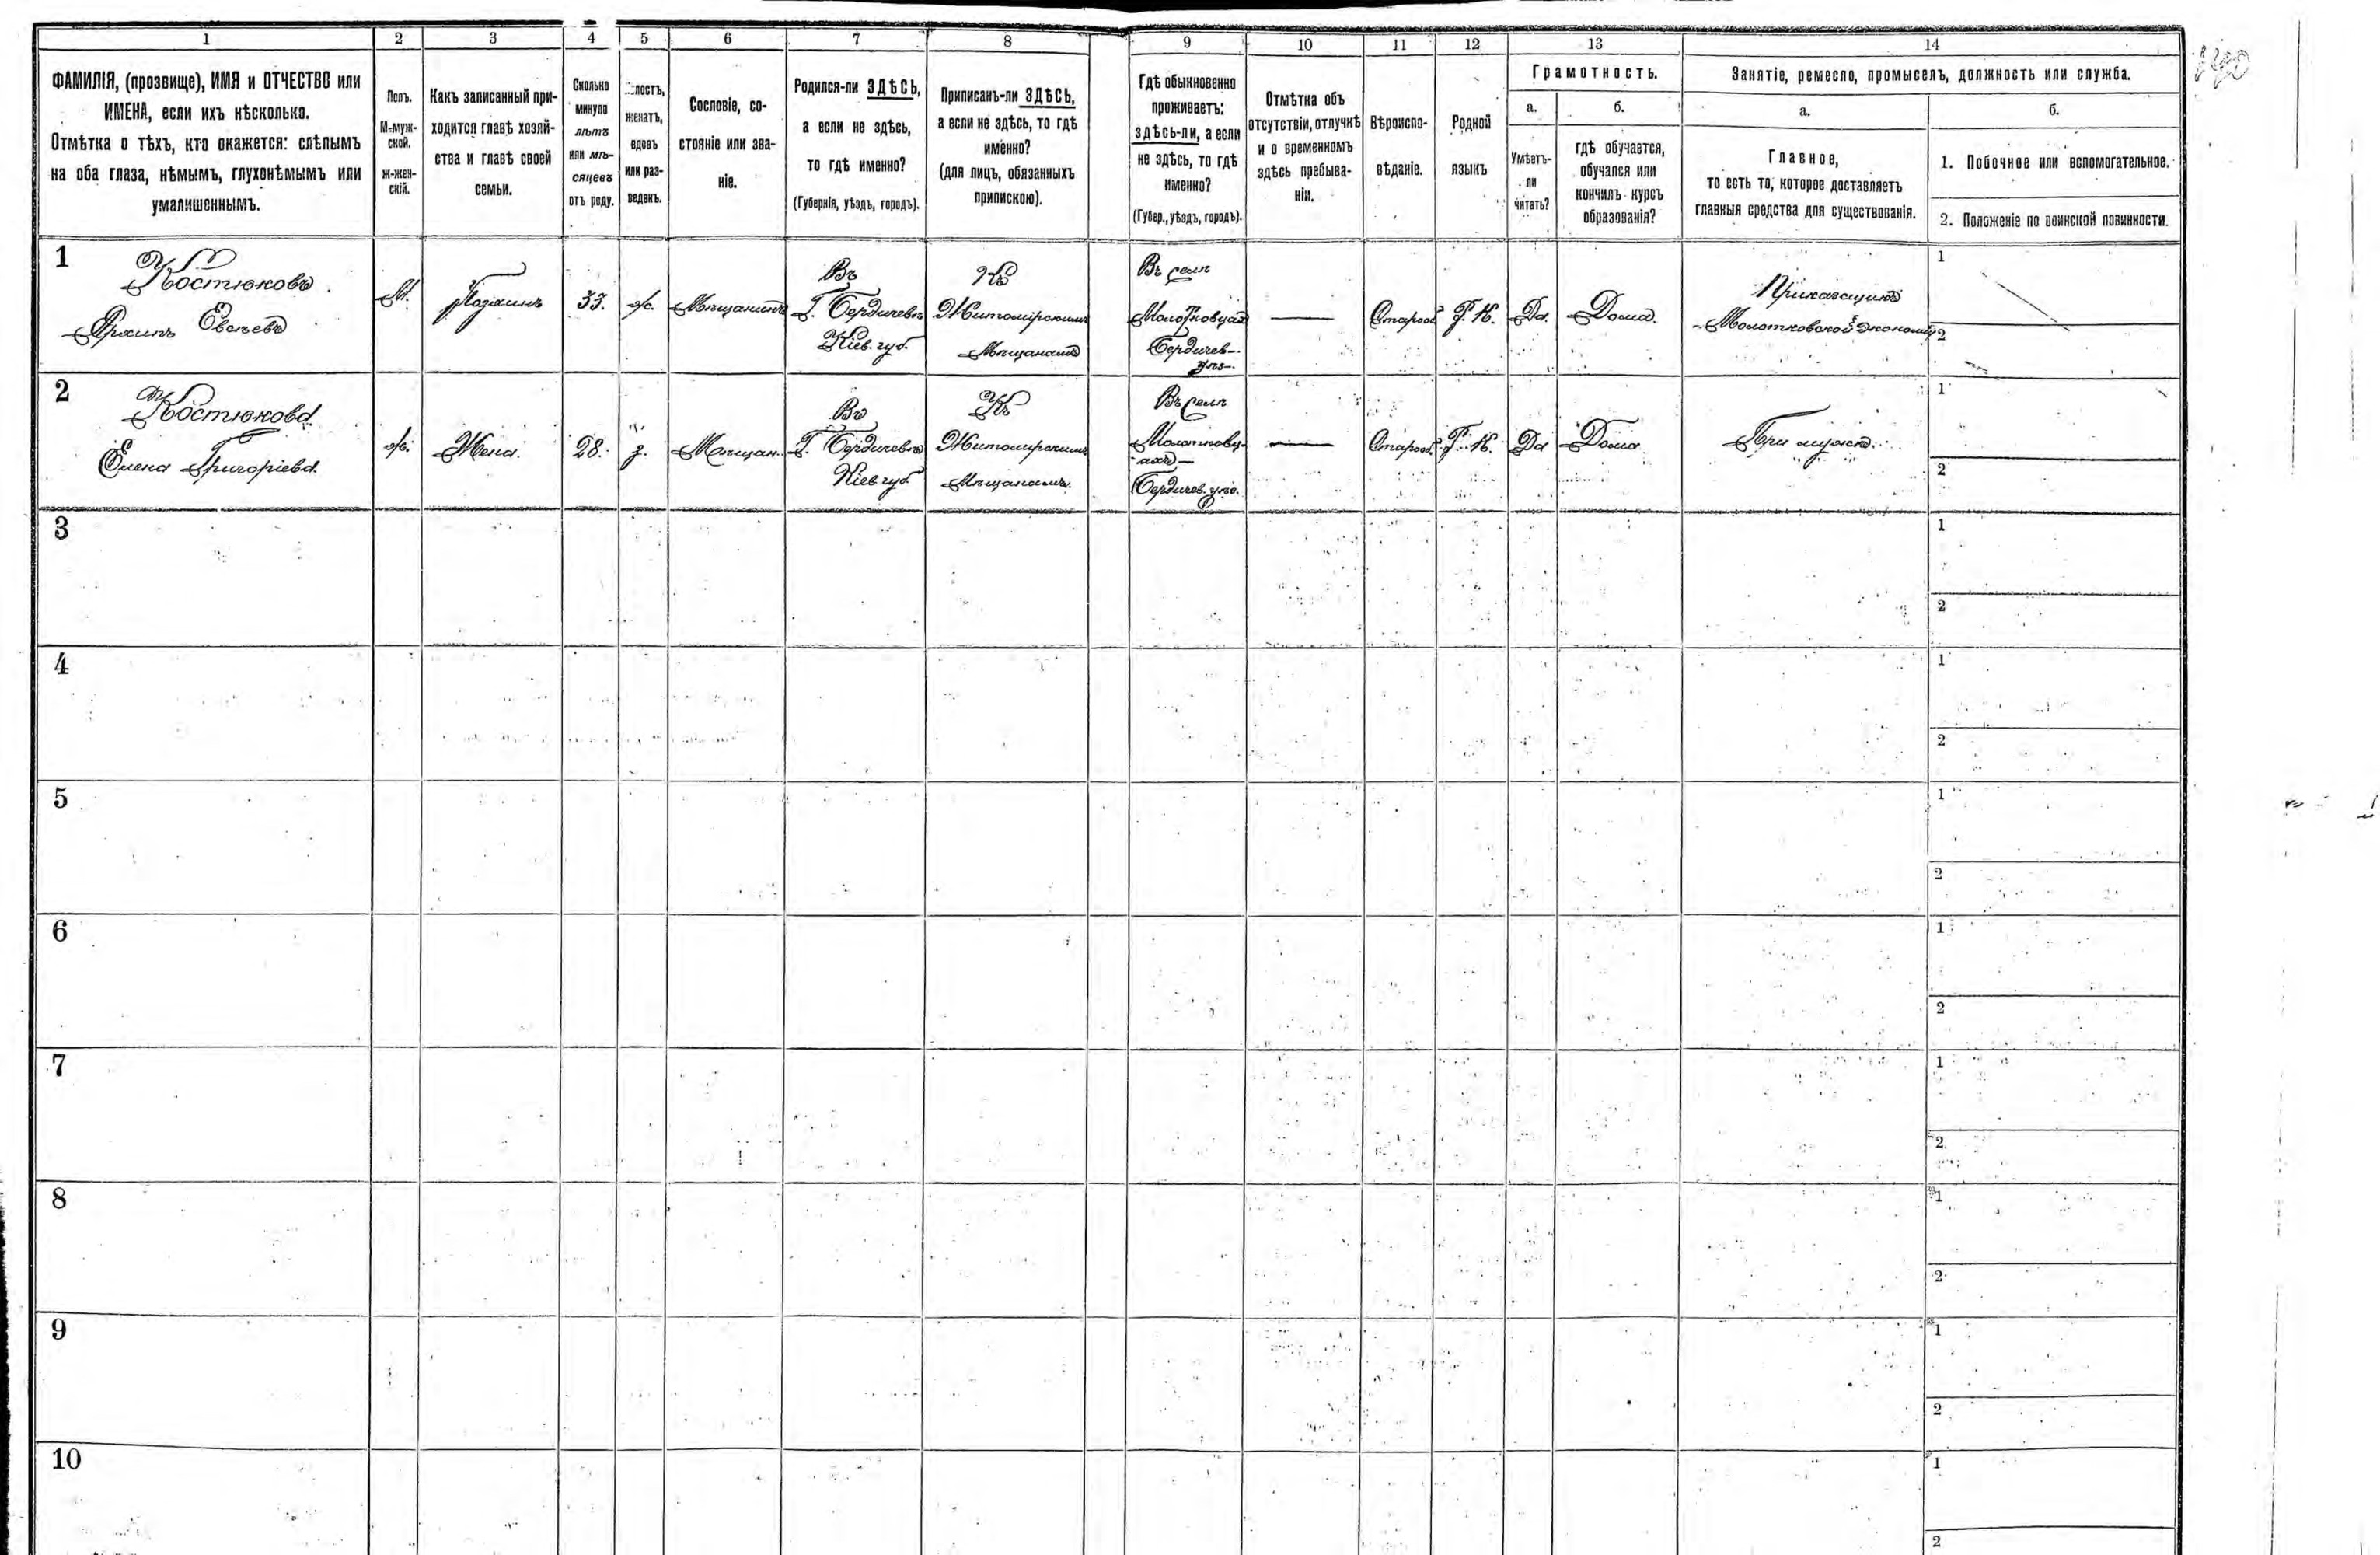 1 2 3 4 5 6 7 8 9 10 11 12 13 14
ФАМИЛІЯ, (прозвище), ИМЯ и ОТЧЕСТВО или
ИМЕНА, если ихъ нѣсколько.
Отмѣтка о тѣхъ, кто окажется: слѣпымъ
на оба глаза, нѣмымъ, глухонѣмымъ или
умалишеннымъ.
Полъ.
М-муж-
ской.
ж-жен-
скій.
Какъ записанный при-
ходится главѣ хозяй-
ства и главѣ своей
семьи.
Сколько
минуло
лѣтъ
или мѣ-
сяцевъ
отъ роду.
лостъ,
женатъ,
вдовъ
или раз-
веденъ.
Сословіе, со-
стояніе или зва-
ніе.
Родился-ли ЗДѢСЬ,
а если не здѣсь,
то гдѣ именно?
(Губернія, уѣздъ, городъ).
Приписанъ-ли ЗДѢСЬ,
а если не здѣсь, то гдѣ
именно?
(для лицъ, обязанныхъ
припискою).
Гдѣ обыкновенно
проживаетъ:
здѣсь-ли, а если
не здѣсь, то гдѣ
именно?
(Губер., уѣздъ, городъ).
Отмѣтка объ
отсутствіи, отлучкѣ
и о временномъ
здѣсь пребыва-
ніи.
Вѣроиспо-
вѣданіе.
Родной
языкъ
Грамотность.
а.
Умѣетъ-
ли
читать?
б.
гдѣ обучается,
обучался или
кончилъ курсъ
образованія?
Занятіе, ремесло, промыселъ, должность или служба.
а.
Главное,
то есть то, которое доставляетъ
главныя средства для существованія.
б.
1. Побочное или вспомогательное.
2. Положеніе по воинской повинности.
1
Костюковъ
Архипъ Евсѣевъ
М.
Хозяинъ
33.
ж.
Мѣщанинъ
Въ
Г. Бердичевѣ
Кіев. губ.
Къ
Житомірскимъ
Мѣщанамъ
Въ селѣ
Бердичев-
уѣз-
Р. К.
Да.
Дома.
Прикащикъ
1
2
2
Костюкова
Елена Григоріева
ж.
Жена.
28.
з.
Мѣщан.
Въ
Г. Бердичевѣ
Кіев губ.
Къ
Житомірскимъ
Мѣщанамъ.
Въ селѣ
Бердичев. уѣз.
Старооб.
Р. К.
Да
Дома
При мужѣ.
1
2
3
1
2
4
1
2
5
1
2
6
1
2
7
1
2
8
1
2
9
1
2
10
1
2